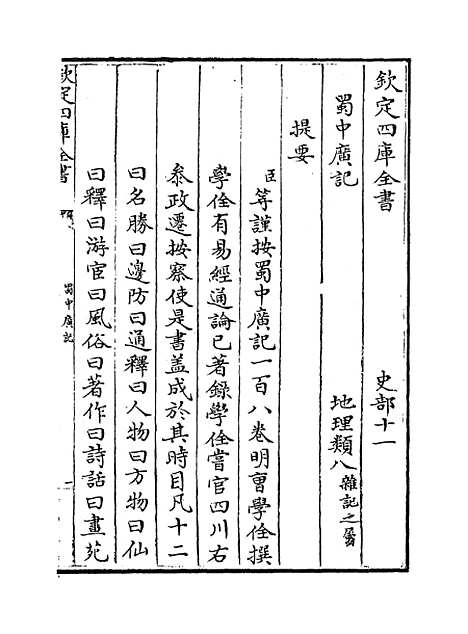 欽定四庫全書 史部十一
蜀中廣記 地理類八雜記之屬
提要
臣等謹按蜀中廣記一百八卷明曺學佺撰
學佺有易經通論已著録學佺嘗官四川右
叅政遷按察使是書盖成於其時目凡十二
曰名勝曰邊防曰通釋曰人物曰方物曰仙
曰釋曰游宦曰風俗曰著作曰詩話曰畫苑
欽定四庫全書
蜀中廣記
一